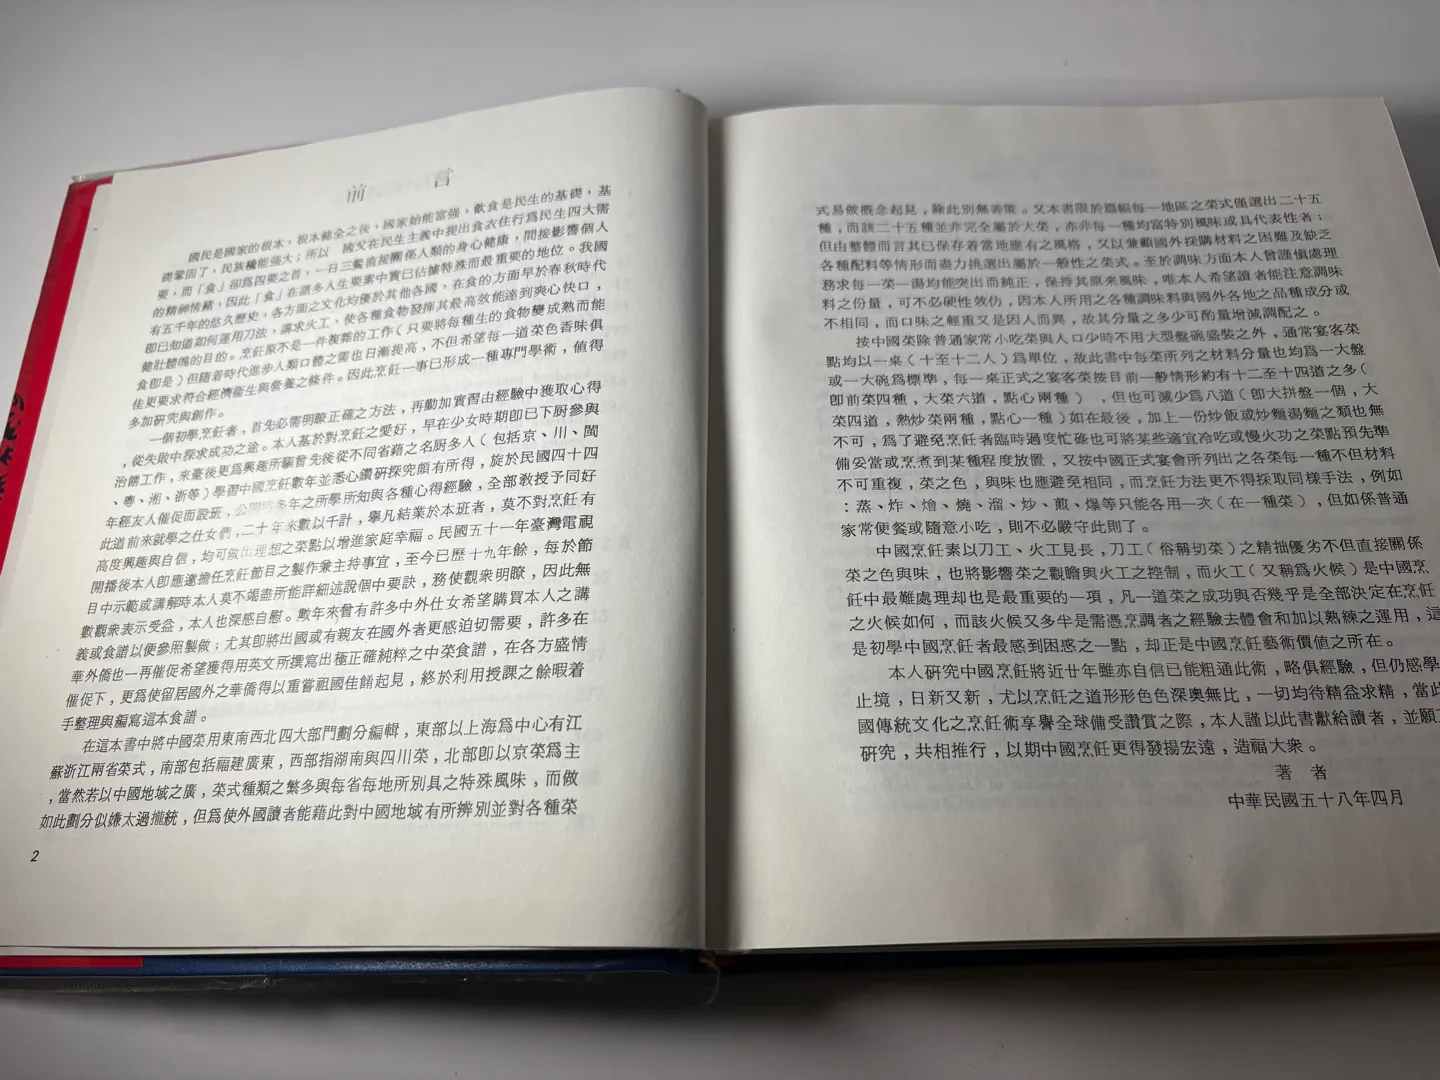 前言
國民是國家的根本，根本健全之後，國家始能富強，飲食是民生的基礎，基
礎鞏固了，民族纔能強大；所以　國父在民生主義中提出食衣住行爲民生四大需
要，而「食」卻爲四要之首，一日三餐直接關係人類的身心健康，間接影響個人
的精神情緒，因此「食」在諸多人生要素中實已佔據特殊而最重要的地位。我國
有五千年的悠久歷史，各方面之文化均優於其他各國，在食的方面早於春秋時代
卽已知道如何運用刀法，講求火工，使各種食物發揮其最高效能達到爽心快口，
健壯體魄的目的。烹飪原不是一件複雜的工作（只要將每種生的食物變成熟而能
食卽是）但隨着時代進步人類口體之需也日漸提高，不但希望每一道菜色香味俱
佳更要求符合經濟衞生與營養之條件。因此烹飪一事已形成一種專門學術，値得
多加硏究與創作。
一個初學烹飪者，首先必需明瞭正確之方法，再勤加實習由經驗中獲取心得
，從失敗中探求成功之途。本人基於對烹飪之愛好，早在少女時期卽已下厨參與
治饍工作，來臺後更爲興趣所驅曾先後從不同省藉之名厨多人（包括京、川、閩
、粵、湘、浙等）學習中國烹飪數年並悉心鑽硏探究頗有所得，旋於民國四十四
年經友人催促而設班，公開將多年之所學所知與各種心得經驗，全部敎授予同好
此道前來就學之仕女們，二十年來數以千計，擧凡結業於本班者，莫不對烹飪有
高度興趣與自信，均可做出理想之菜點以增進家庭幸福。民國五十一年臺灣電視
開播後本人卽應邀擔任烹飪節目之製作兼主持事宜，至今已歷十九年餘，每於節
目中示範或講解時本人莫不竭盡所能詳細述說個中要訣，務使觀衆明瞭，因此無
數觀衆表示受益，本人也深感自慰。數年來曾有許多中外仕女希望購買本人之講
義或食譜以便參照製做；尤其卽將出國或有親友在國外者更感迫切需要，許多在
華外僑也一再催促希望獲得用英文所撰寫出極正確純粹之中菜食譜，在各方盛情
催促下，更爲使留居國外之華僑得以重嘗祖國佳餚起見，終於利用授課之餘暇着
手整理與編寫這本食譜。
在這本書中將中國菜用東南西北四大部門劃分編輯，東部以上海爲中心有江
蘇浙江兩省菜式，南部包括福建廣東，西部指湖南與四川菜，北部卽以京菜爲主
，當然若以中國地域之廣，菜式種類之繁多與每省每地所別具之特殊風味，而做
如此劃分似嫌太過攏統，但爲使外國讀者能藉此對中國地域有所辨別並對各種菜
2
式易做槪念起見，除此別無善策。又本書限於篇幅每一地區之菜式僅選出二十五
種，而該二十五種並非完全屬於大菜，亦非每一種均富特別風味或具代表性者；
但由整體而言其已保存着當地應有之風格，又以兼顧國外採購材料之困難及缺乏
各種配料等情形而盡力挑選出屬於一般性之菜式。至於調味方面本人曾謹愼處理
務求每一菜一湯均能突出而純正，保持其原來風味，唯本人希望讀者能注意調味
料之份量，可不必硬性效仿，因本人所用之各種調味料與國外各地之品種成分或
不相同，而口味之輕重又是因人而異，故其分量之多少可酌量增減調配之。
按中國菜除普通家常小吃菜與人口少時不用大型盤碗盛裝之外，通常宴客菜
點均以一桌（十至十二人）爲單位，故此書中每菜所列之材料分量也均爲一大盤
或一大碗爲標準，每一桌正式之宴客菜按目前一般情形約有十二至十四道之多（
卽前菜四種，大菜六道，點心兩種），但也可減少爲八道（卽大拼盤一個，大
菜四道，熱炒菜兩種，點心一種）如在最後，加上一份炒飯或炒麵湯麵之類也無
不可，爲了避免烹飪者臨時過度忙碌也可將某些適宜冷吃或慢火功之菜點預先準
備妥當或烹煮到某種程度放置，又按中國正式宴會所列出之各菜每一種不但材料
不可重複，菜之色，與味也應避免相同，而烹飪方法更不得採取同樣手法，例如
：蒸、炸、燴、燒、溜、炒、煎、爆等只能各用一次（在一種菜），但如係普通
家常便餐或隨意小吃，則不必嚴守此則了。
中國烹飪素以刀工、火工見長，刀工（俗稱切菜）之精拙優劣不但直接關係
菜之色與味，也將影響菜之觀瞻與火工之控制，而火工（又稱爲火候）是中國烹
飪中最難處理却也是最重要的一項，凡一道菜之成功與否幾乎是全部決定在烹飪
之火候如何，而該火候又多半是需憑烹調者之經驗去體會和加以熟練之運用，這
是初學中國烹飪者最感到困惑之一點，却正是中國烹飪藝術價値之所在。
本人硏究中國烹飪將近廿年雖亦自信已能粗通此術，略俱經驗，但仍感學
止境，日新又新，尤以烹飪之道形形色色深奧無比，一切均待精益求精，當此
國傳統文化之烹飪術享譽全球備受讚賞之際，本人謹以此書獻給讀者，並願
硏究，共相推行，以期中國烹飪更得發揚宏遠，造福大衆。
著者
中華民國五十八年四月